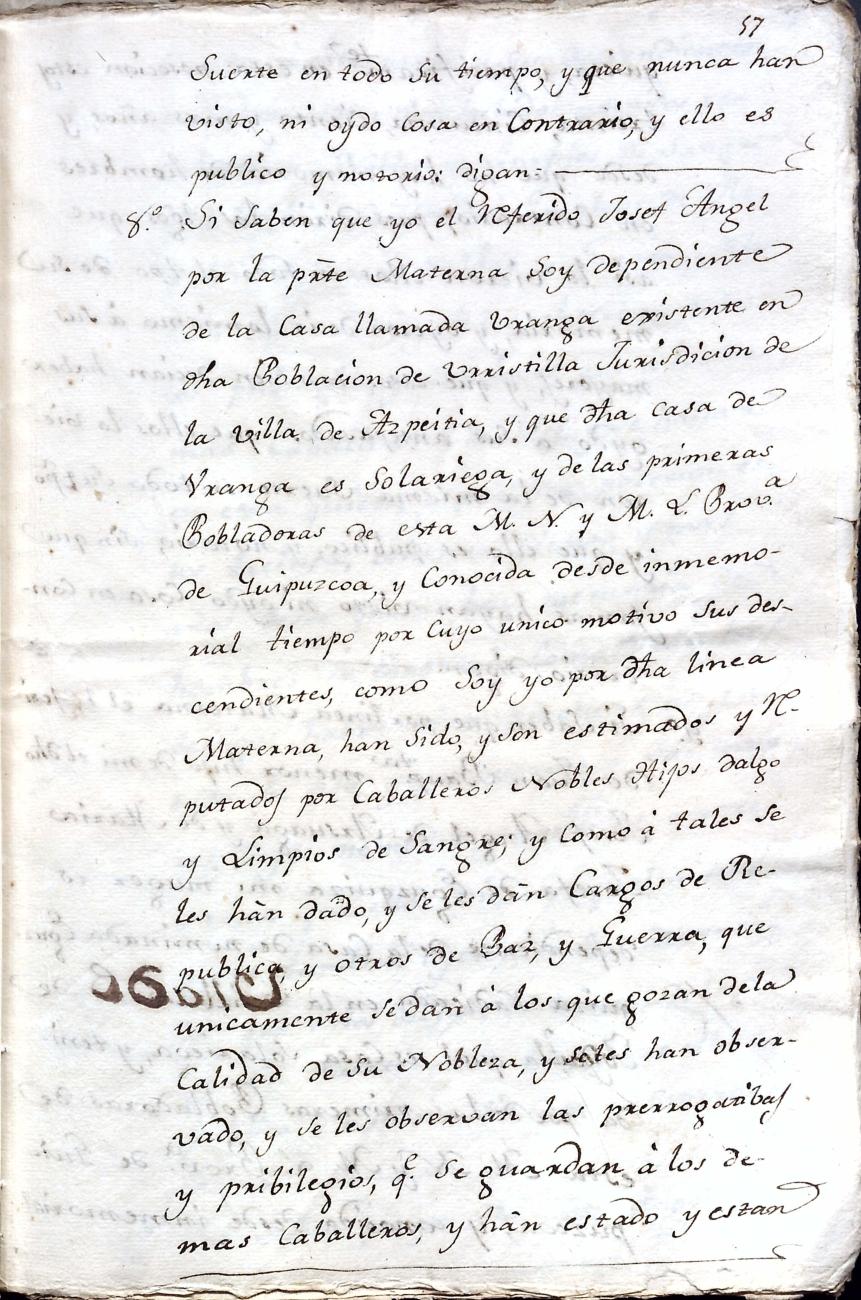 57
Suerte en todo Su tiempo, y que nunca han
visto, ni oydo Cosa en Contrario, y ello es
publico y notorio: digan:
8.º Si Saben que yo el Rferido Josef Angel
por la prte Materna Soy dependiente
de la Casa llamada Vranga existente en
dha Poblacion de Vrristilla Jurisdicion de
la villa de Azpeitia, y que dha casa de
Vranga es Solariega, y de las primeras
Pobladoras de esta M. N. y M. L. Prov.a
de Guipuzcoa, y Conocida desde inmemo-
rial tiempo por Cuyo unico motivo Sus des-
cendientes, como Soy yo por dha linea
Materna, han Sido, y son estimados y Re-
putados por Caballeros Nobles Hijos dalgo
y Limpios de Sangre; y Como à tales se
les hàn dado, y se les dàn Cargos de Re-
publica, y otros de Paz, y Guerra, que
unicamente se dan à los que gozan de la
Calidad de Su Nobleza, y se les han obser-
vado, y se les observan las prerrogatibas
y pribilegios, q.e Se guardan à los de-
mas Caballeros, y hàn estado y estan